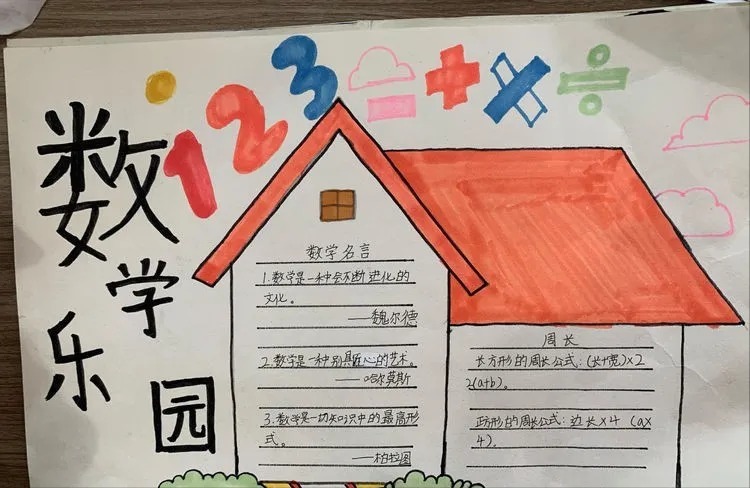 数学乐园
123 = + × ÷
数学名言
1.数学是一种会不断进化的
文化。
——魏尔德
2.数学是一种别具匠心的艺术。
——哈尔莫斯
3.数学是一切知识中的最高形
式。
——柏拉图
周长
长方形的周长公式:(长+宽)×2
2(a+b)。
正方形的周长公式:边长×4 (a×
4)。